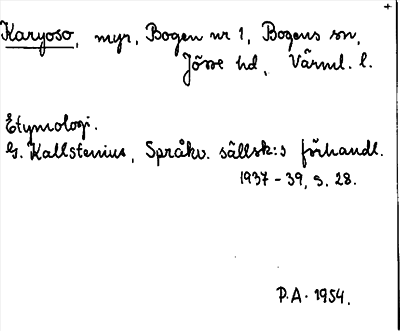 +
Karyoso, myr, Bogen nr 1, Bogens sn,
Jösse hd, Värml. l.
Etymologi.
G. Kallstenius, Språkv. sällsk:s förhandl.
1937-39, s. 28.
P.A. 1954.